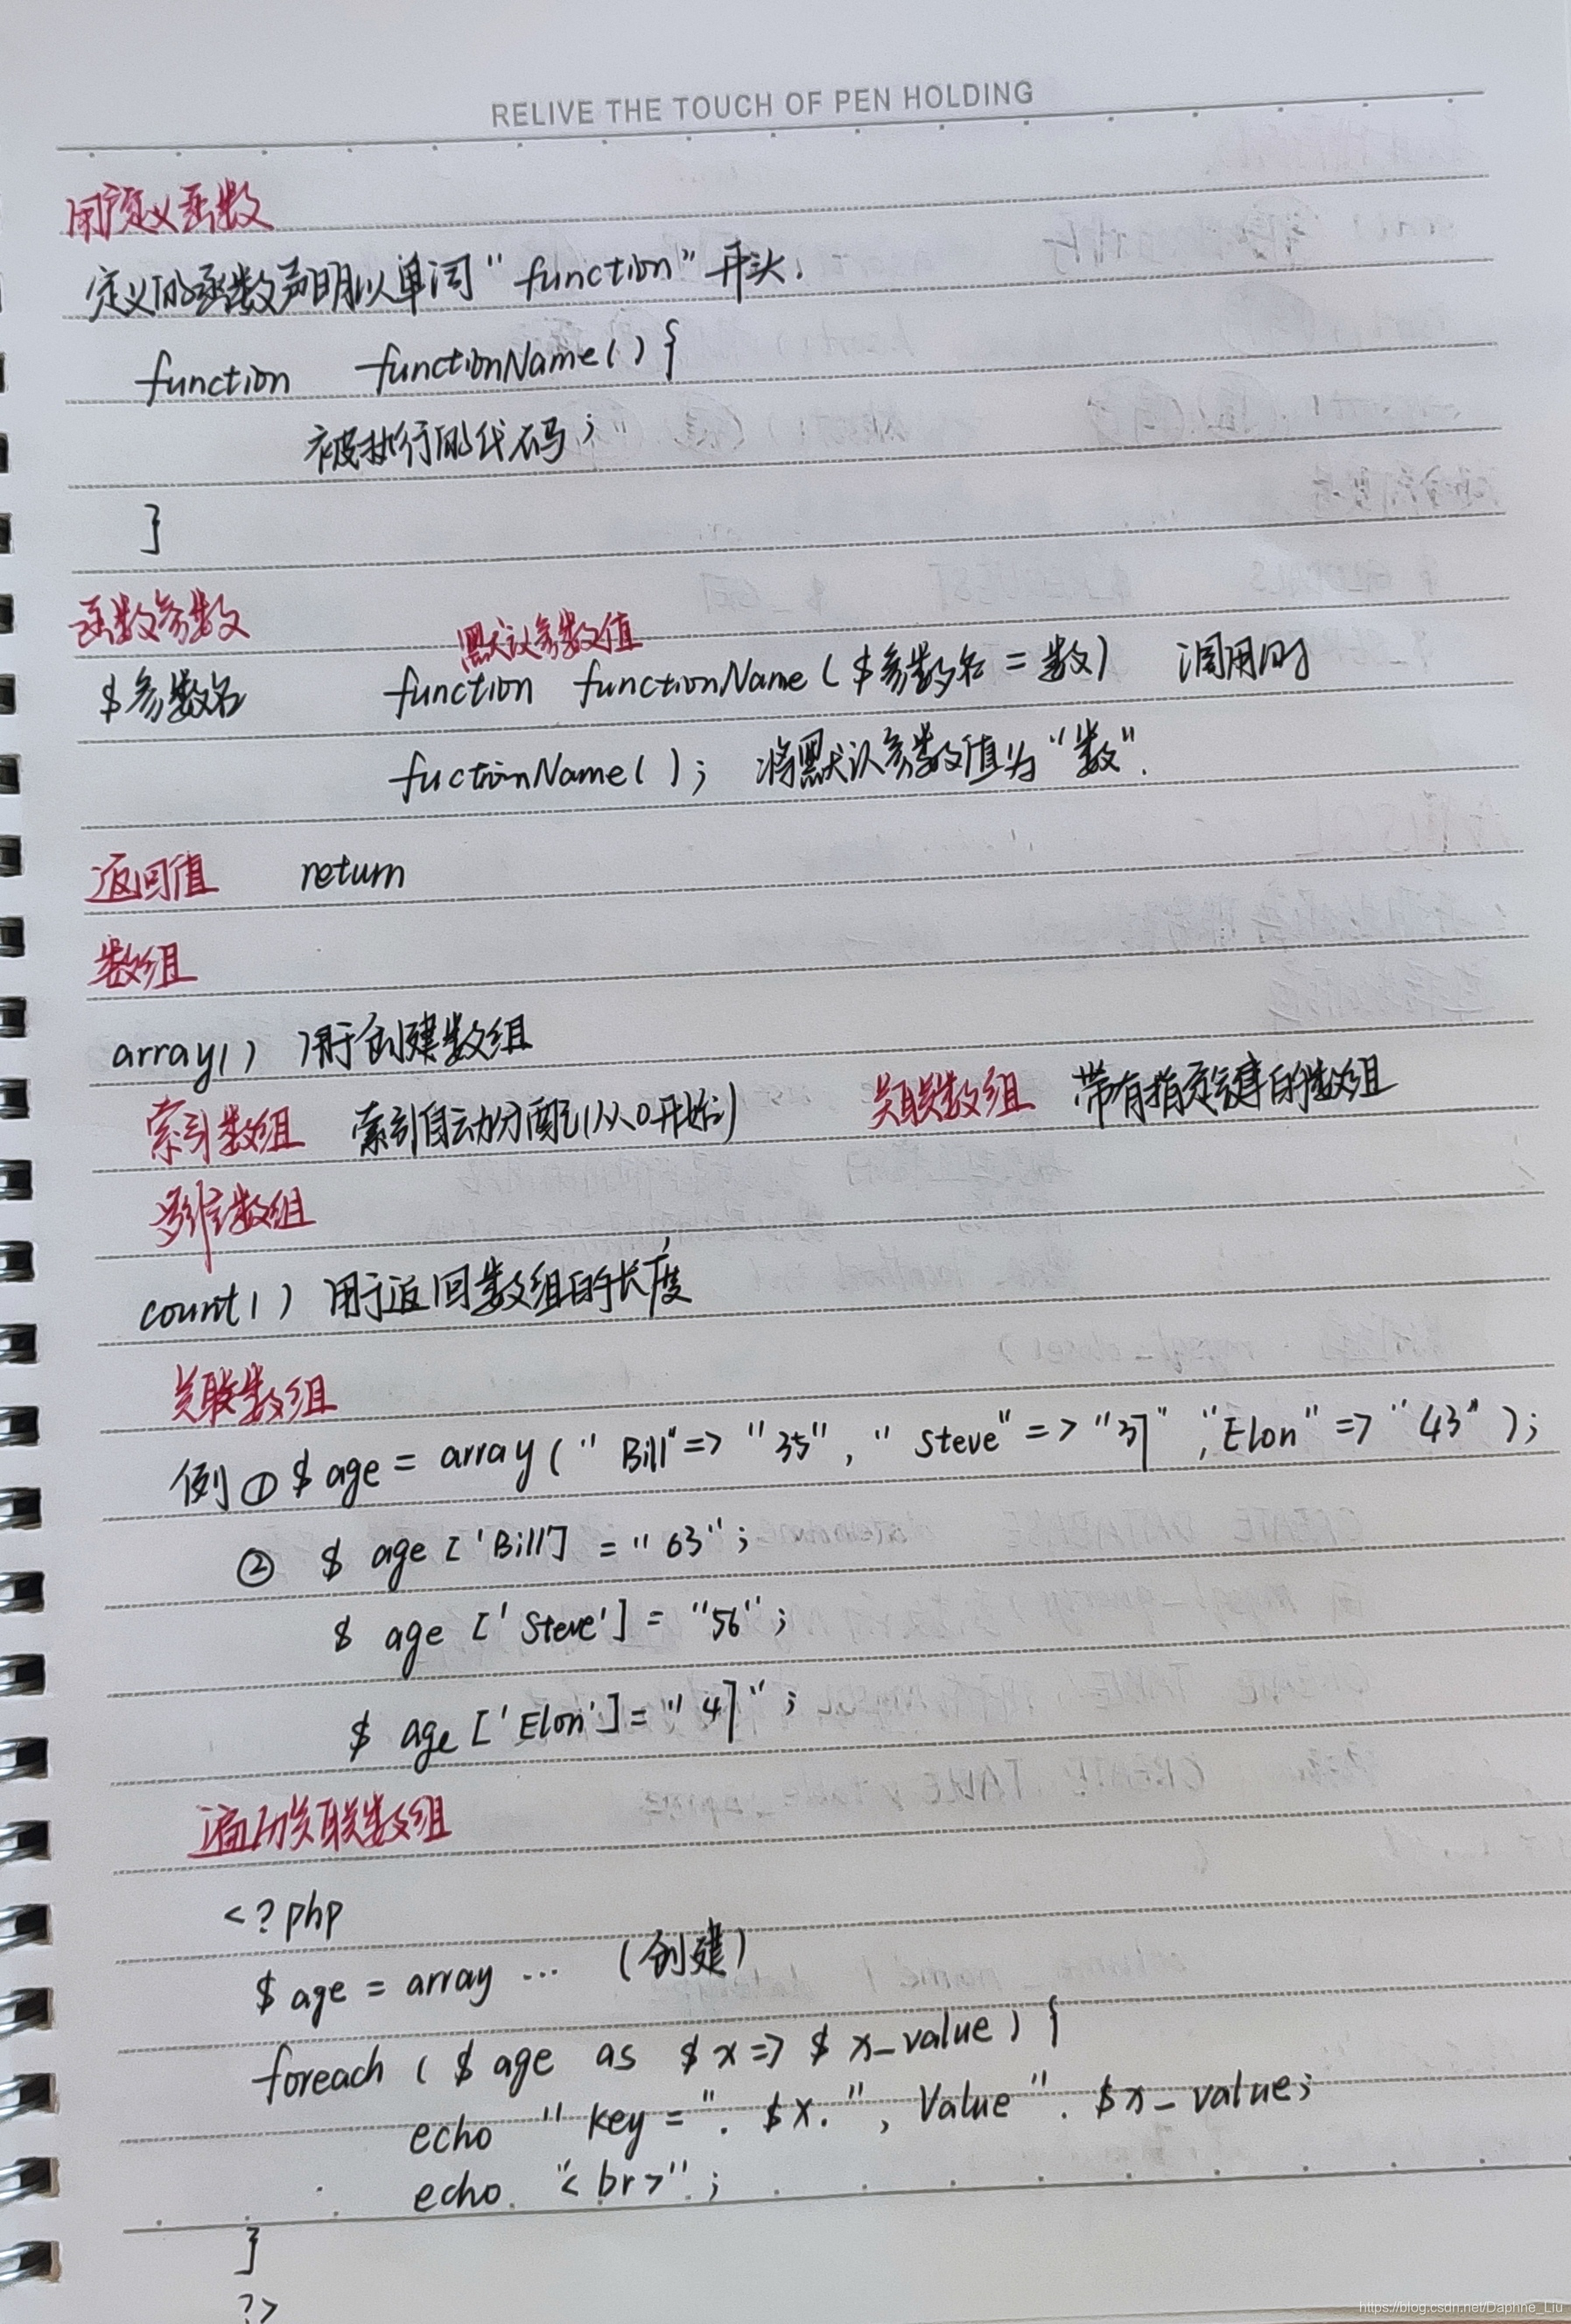 RELIVE THE TOUCH OF PEN HOLDING
用户定义函数
定义的函数声明以单词"function"开头.
function functionName(){
被执行的代码;
}
函数参数
默认参数值
$参数名 function functionName($参数名=数) 调用时
fuctionName(); 将默认参数值为"数".
返回值 return
数组
array() 用于创建数组
索引数组 索引自动分配(从0开始) 关联数组 带有指定键的数组
多维数组
count() 用于返回数组的长度
关联数组
例① $age = array("Bill"=>"35","Steve"=>"37","Elon"=>"43");
② $age['Bill'] = "63";
$age['Steve'] = "56";
$age['Elon'] = "47";
遍历关联数组
<?php
$age = array ... (创建)
foreach ($age as $x=>$x_value) {
echo "key=". $x. ", Value". $x_value;
echo "<br>";
}
?>
https://blog.csdn.net/Daphne_Liu